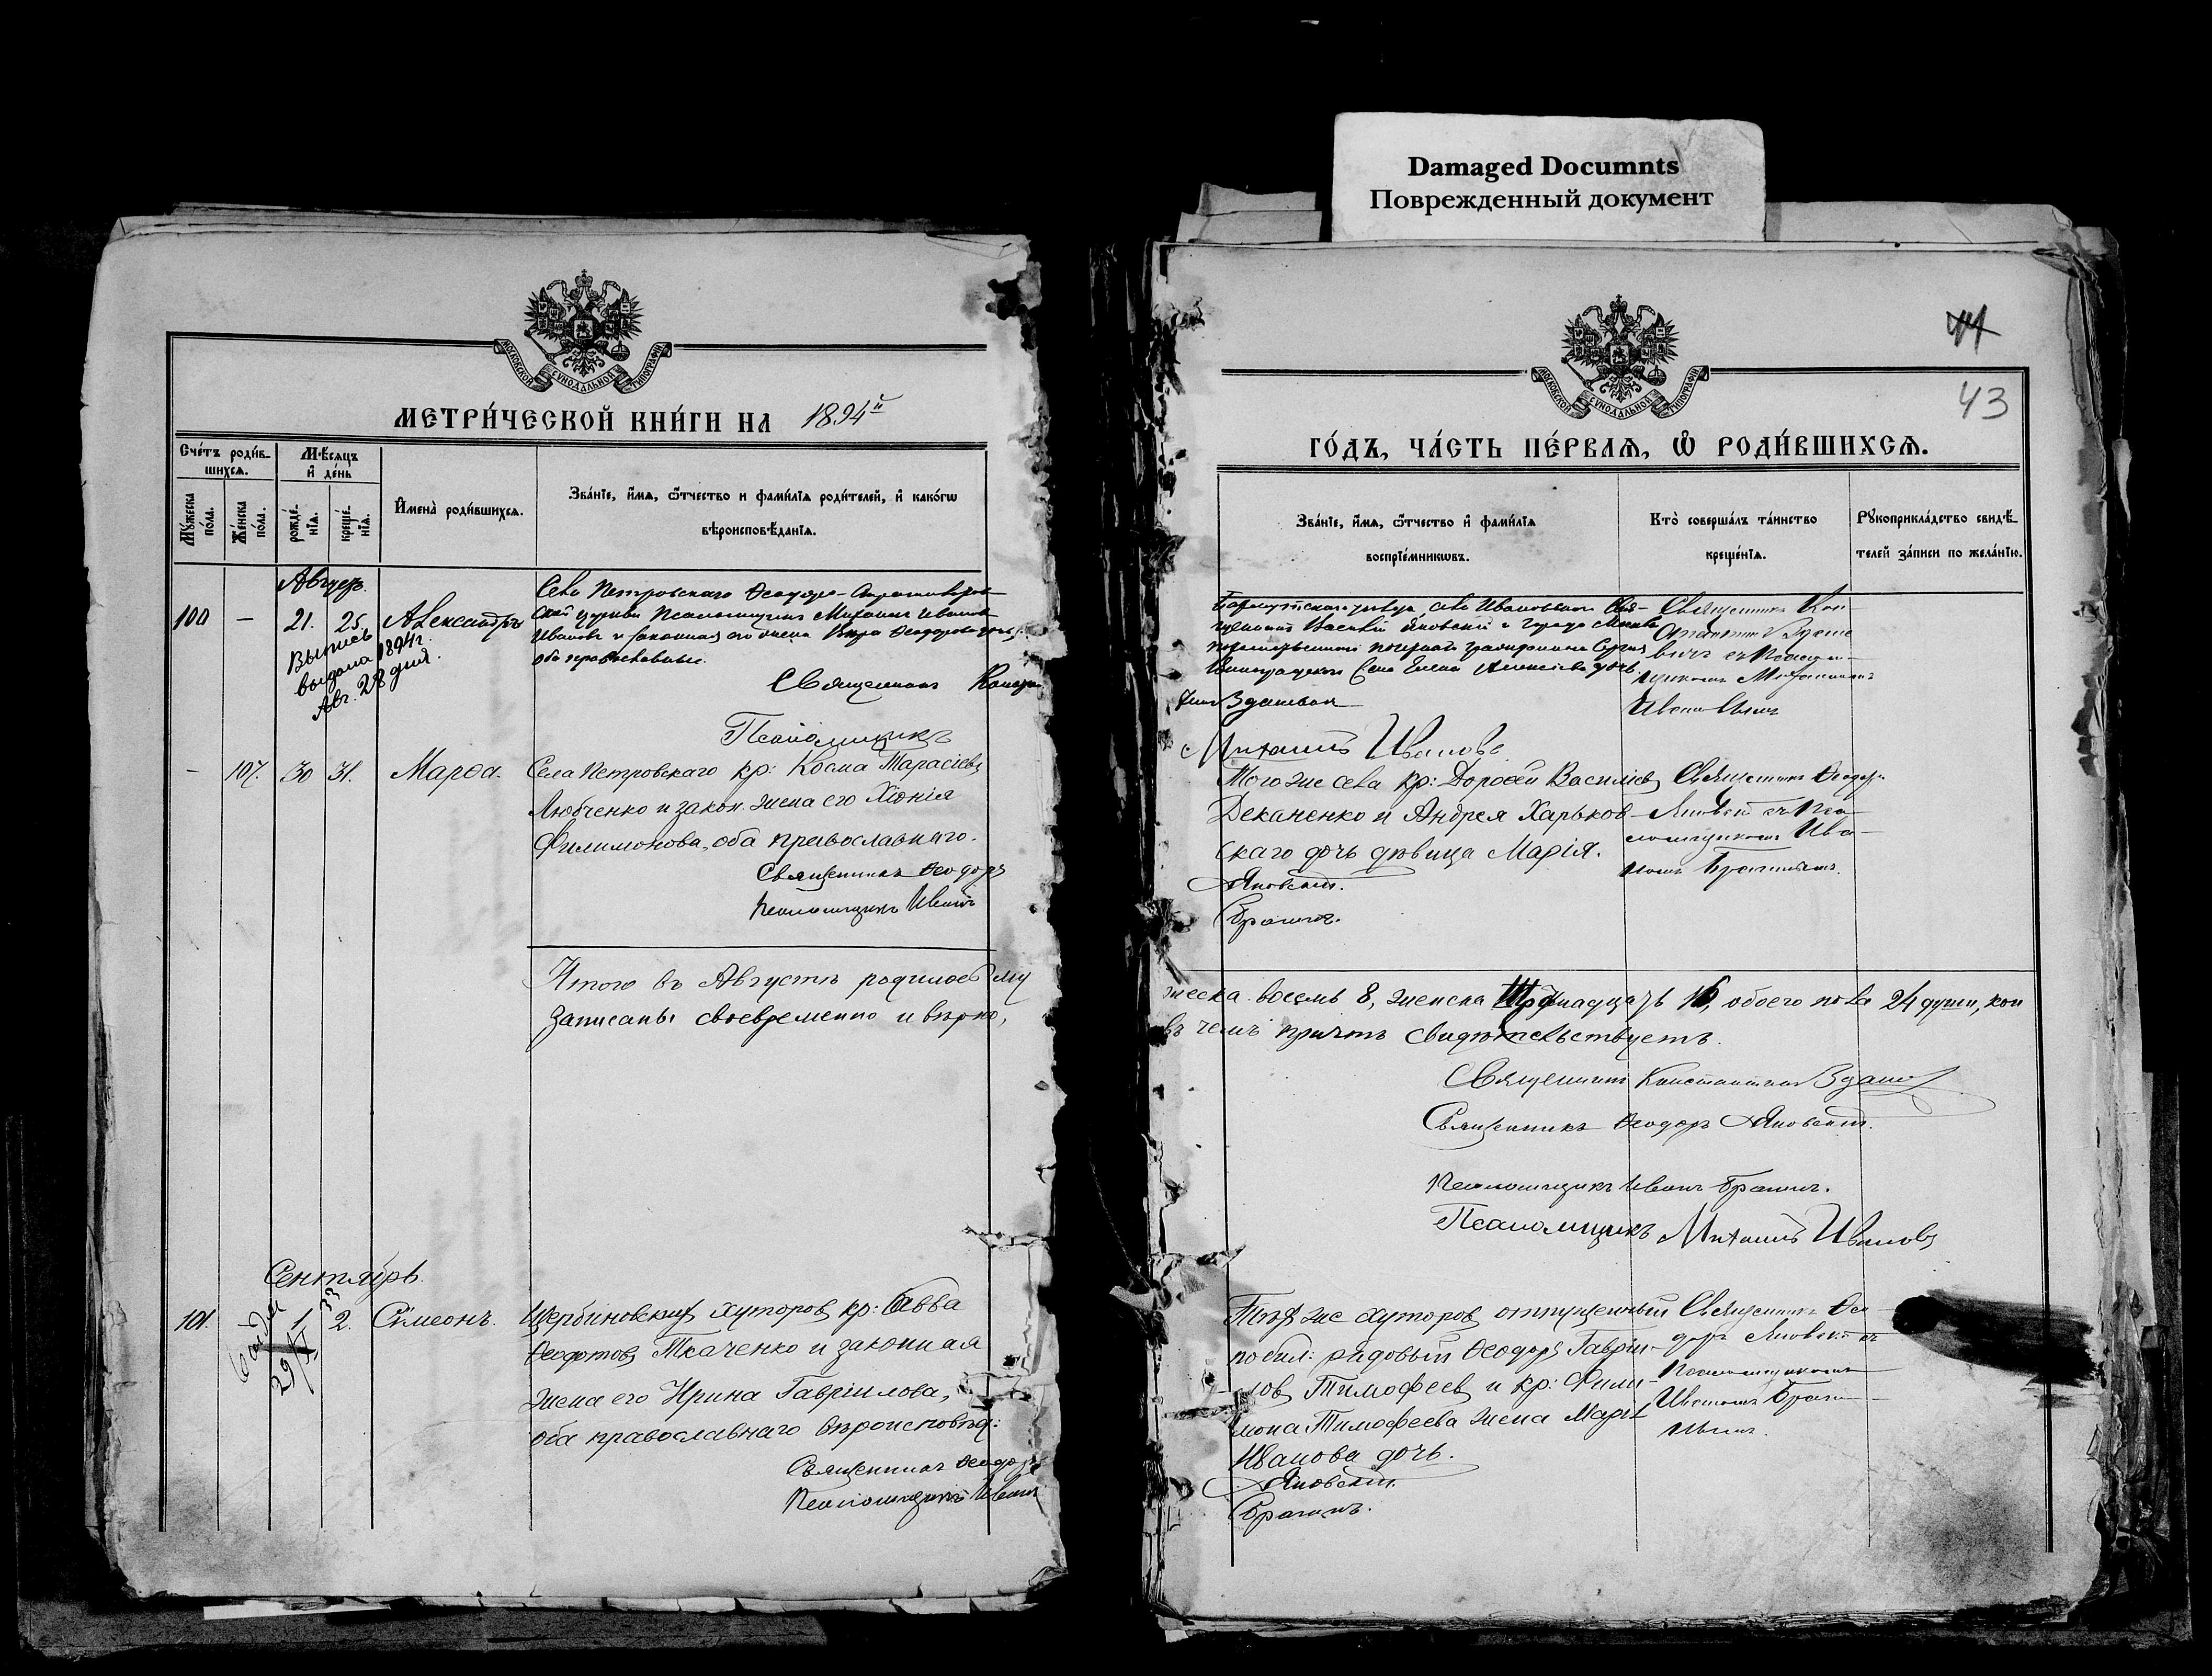 Damaged Documnts
Поврежденный документ
МОСКОВСКОЙ СУНОДАЛЬНОЙ ТИПОГРАФІИ
МЕТРИ́ЧЕСКОЙ КНИ́ГИ НА 1894й
Сче́тъ роди́в-
шихсѧ.
Мѣ́сѧцъ
и҆ де́нь
Мꙋ́жеска
по́ла.
Же́нска
по́ла.
рожде́-
нїѧ.
креще́-
нїѧ.
И҆мена̀ роди́вшихсѧ.
Зва́нїе, и҆́мѧ, ѻ҆́тчество и фами́лїѧ роди́телей, и҆ како́гѡ
вѣроисповѣ́данїѧ.
Августъ.
100 — 21. 25. Александръ
Выпись
выдана 1894 г.
Авг. 28 дня.
Села Петровскаго Ѳеодоро-
ской церкви Псаломщикъ Михаилъ Иванов
Ивановъ и законная его жена Вѣра Ѳеодорова
оба православные.
Священникъ
Псаломщикъ
— 107. 30 31. Марѳа.
Села Петровскаго кр: Косма Тарасіевъ
Любченко и закон. жена его Хіонія
Филимонова, оба православнаго.
Священникъ Ѳеодоръ
Псаломщикъ Иванъ
Итого въ Августѣ родилось му
записаны своевременно и вѣрно,
Сентябрь.
101. 1. 2. Сѵмеонъ.
29/XI 33
Щербиновскихъ хуторовъ кр: Савва
Ѳеодотовъ Ткаченко и законная
жена его Ирина Гавріилова,
оба православнаго вѣроисповѣд:
Священникъ Ѳеодоръ
Псаломщикъ Иванъ
44
43
МОСКОВСКОЙ СУНОДАЛЬНОЙ ТИПОГРАФІИ
ГО́ДЪ, ЧА́СТЬ ПЕ́РВАѦ, Ѽ РОДИ́ВШИХСѦ.
Зва́нїе, и҆́мѧ, ѻ҆́тчество и҆ фами́лїѧ
воспрїе́мникѡвъ.
Кто̀ соверша́лъ та́инство
креще́нїѧ.
Рꙋкоприкла́дство свидѣ́-
телей за́писи по жела́нїю.
уѣзда, села Ивановки Свя-
щенникъ Василій Яновскій и города
Елена Алексѣева дочь
Здановичъ
Михаилъ Ивановъ
Священникъ Кон-
стантинъ Здано-
вичъ съ Псалом-
щикомъ Михаиломъ
Ивановымъ
Того же села кр: Дороѳей Василіевъ
Деканенко и Андрея Харьков-
скаго дочь дѣвица Марія.
Яновскій.
Брагинъ.
Священникъ Ѳеодоръ
Яновскій съ Пса-
ломщикомъ Ива-
номъ Брагинымъ.
жеска восемь 8, женска шестнадцать 16, обоего пола 24 души, кои
въ чемъ причтъ свидѣтельствуетъ.
Священникъ Константинъ Здано
Священникъ Ѳеодоръ Яновскій.
Псаломщикъ Иванъ Брагинъ.
Псаломщикъ Михаилъ Ивановъ
Тѣхъ же хуторовъ отпущенный
по бил: рядовый Ѳеодоръ Гавріи-
ловъ Тимофеевъ и кр: Фили-
мона Тимофеева жена Марія
Иванова дочь.
Яновскій.
Брагинъ.
Священникъ Ѳео-
доръ Яновскій съ
Псаломщикомъ
Иваномъ Браги-
нымъ.